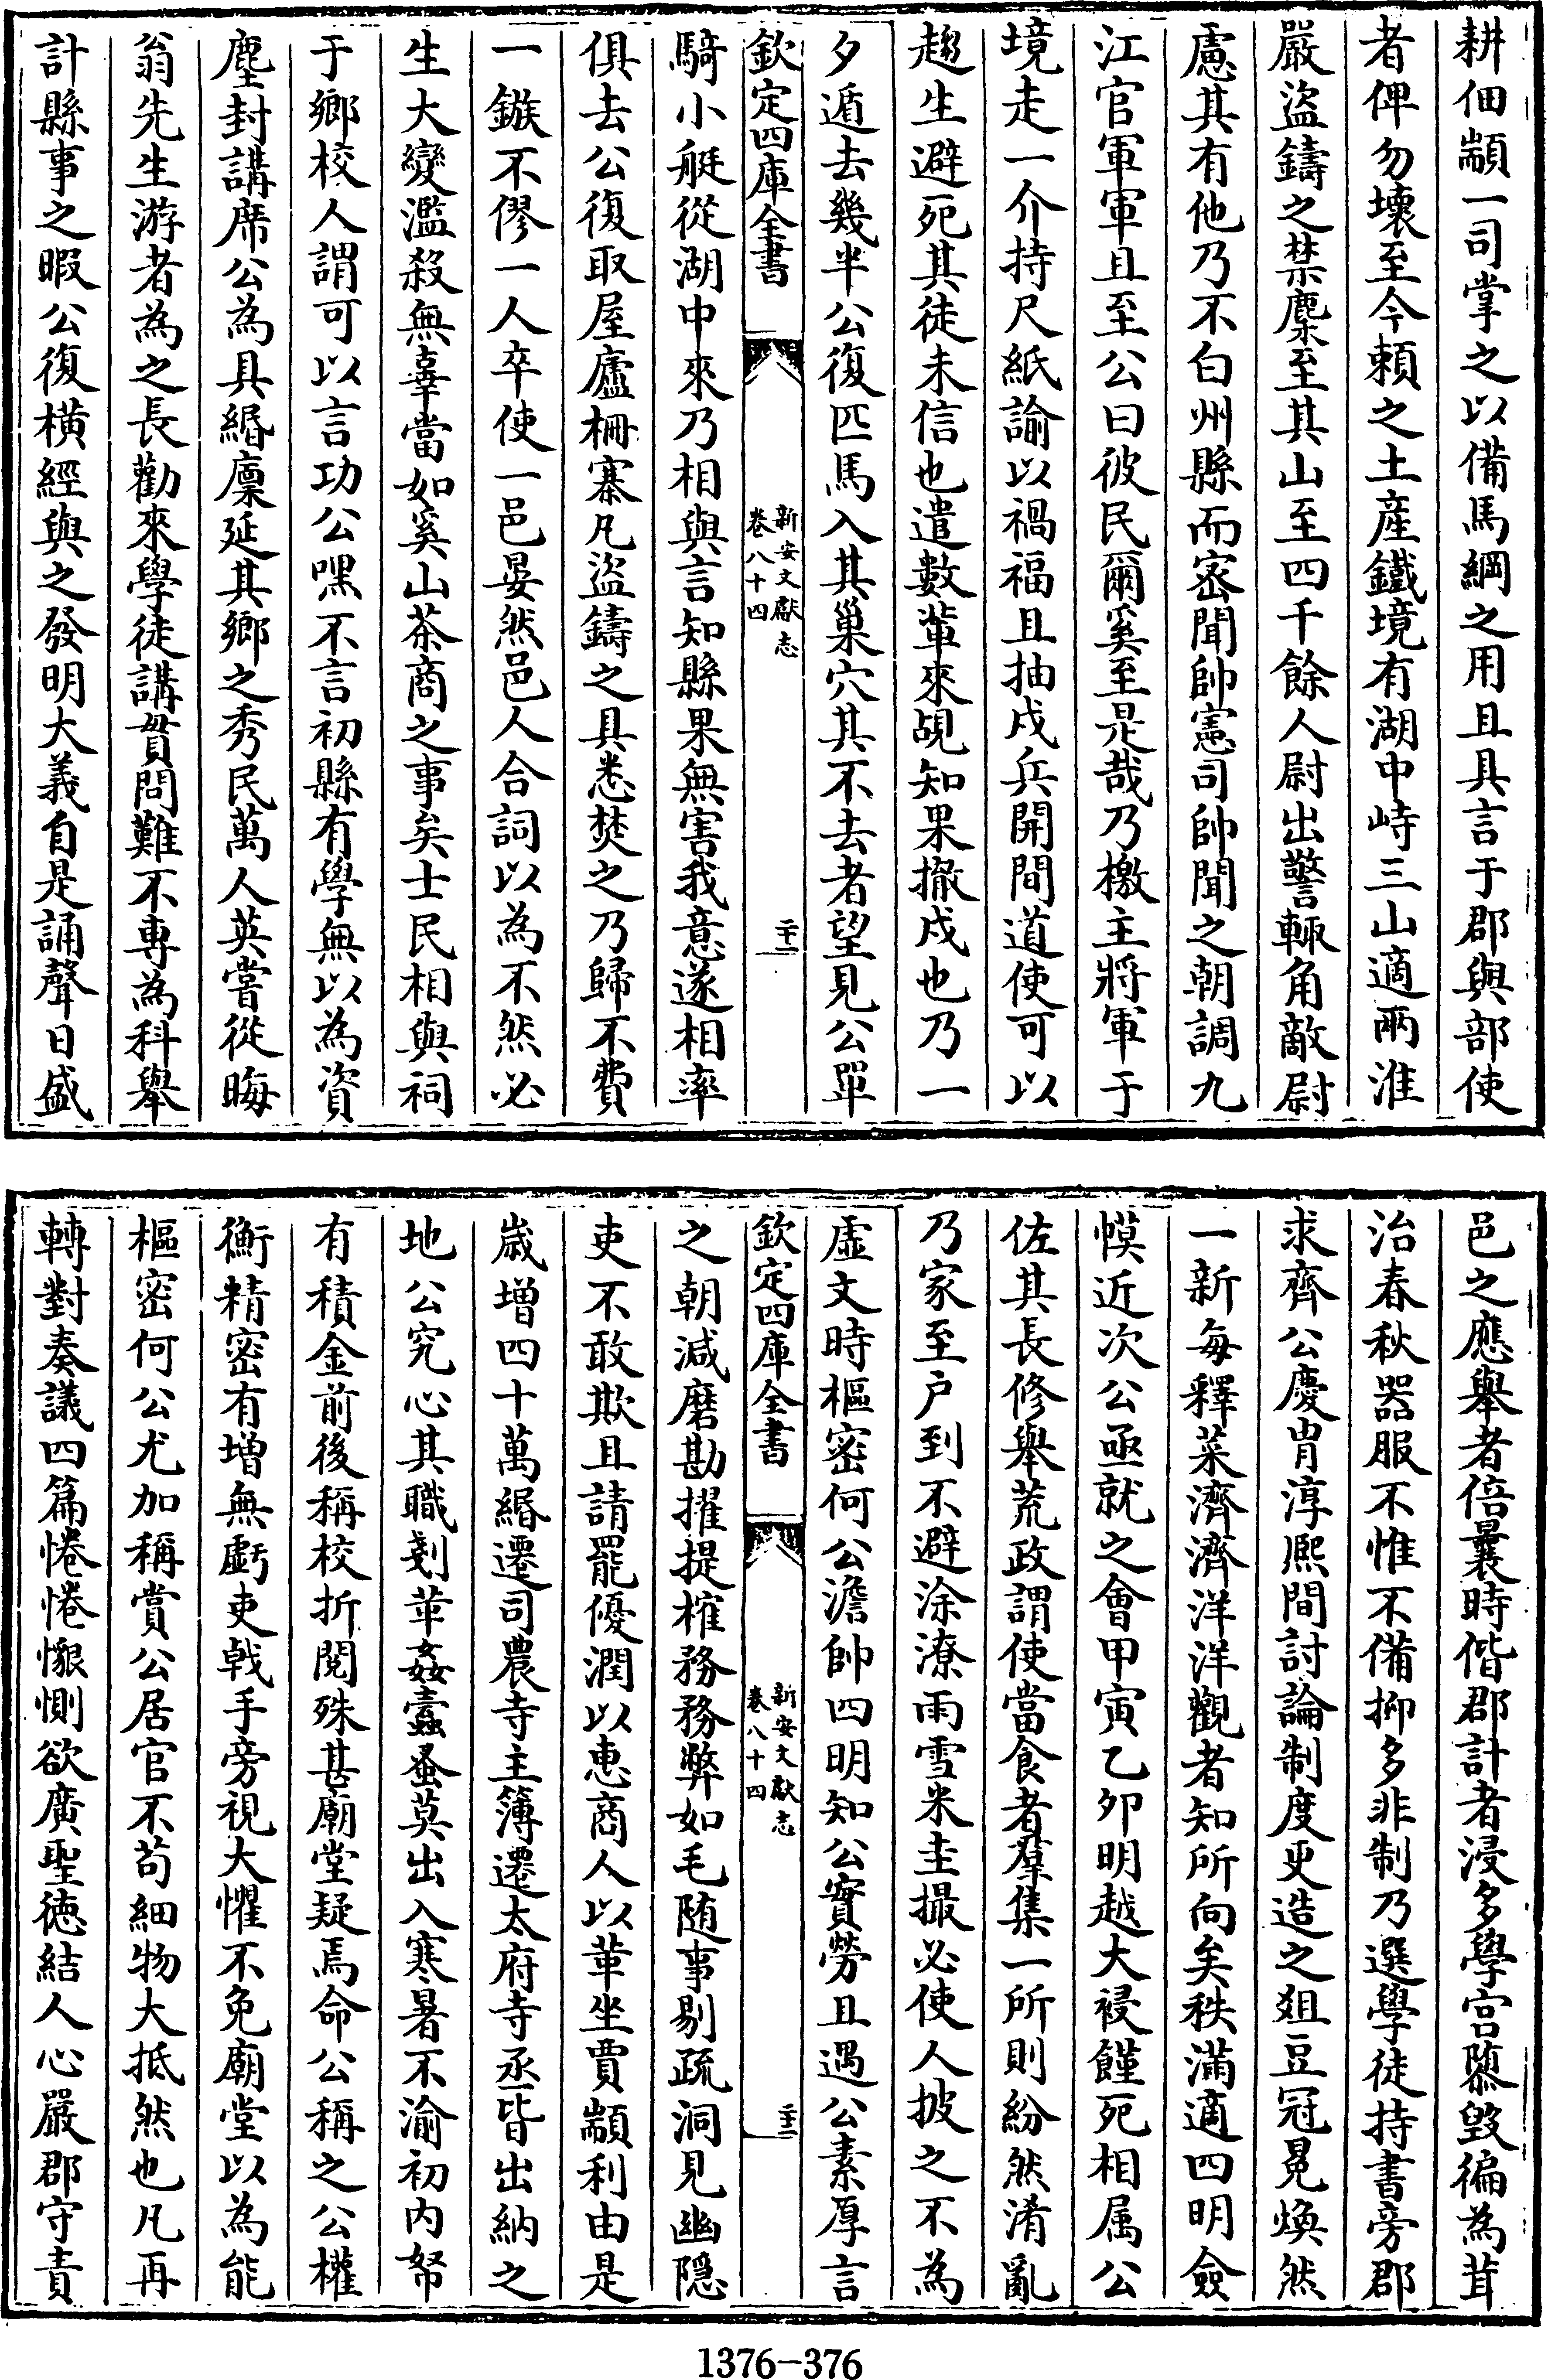 耕佃顓一司掌之以備馬綱之用且具言于郡與部使
者俾勿壞至今賴之土産鐵境有湖中峙三山適兩淮
嚴盜鑄之禁麇至其山至四千餘人尉出警輒角敵尉
慮其有他乃不白州縣而密聞帥憲司帥聞之朝調九
江官軍軍且至公曰彼民爾奚至是哉乃檄主將軍于
境走一介持尺紙諭以禍福且抽戍兵開間道使可以
趨生避死其徒未信也遣數輩來覘知果撤戍也乃一
夕遁去幾半公復匹馬入其巢穴其不去者望見公單
欽定四庫全書
新安文獻志
卷八十四
二十一
騎小艇從湖中來乃相與言知縣果無害我意遂相率
俱去公復取屋廬柵寨凡盜鑄之具悉焚之乃歸不費
一鏃不僇一人卒使一邑晏然邑人合詞以為不然必
生大變濫殺無辜當如奚山茶商之事矣士民相與祠
于鄉校人謂可以言功公嘿不言初縣有學無以為資
塵封講席公為具緡廩延其鄉之秀民萬人英嘗從晦
翁先生游者為之長勸來學徒講貫問難不專為科舉
計縣事之暇公復橫經與之發明大義自是誦聲日盛
邑之應舉者倍曩時偕郡計者浸多學宫隳毀徧為葺
治春秋器服不惟不備抑多非制乃選學徒持書旁郡
求齊公慶胄淳熙間討論制度更造之爼豆冠冕煥然
一新每釋菜濟濟洋洋觀者知所向矣秩滿適四明僉
幙近次公亟就之會甲寅乙夘明越大祲饉死相属公
佐其長修舉荒政謂使當食者羣集一所則紛然淆亂
乃家至户到不避涂潦雨雪米圭撮必使人披之不為
虛文時樞密何公澹帥四明知公實勞且遇公素厚言
欽定四庫全書
新安文獻志
卷八十四
二十二
之朝減磨勘擢提榷務務弊如毛随事剔疏洞見幽隠
吏不敢欺且請罷優潤以惠商人以革坐賈顓利由是
歳增四十萬緡遷司農寺主簿遷太府寺丞皆出納之
地公究心其職剗革姦蠹蚤莫出入寒暑不渝初内帑
有積金前後稱校折閱殊甚廟堂疑焉命公稱之公權
衡精密有增無虧吏戟手旁視大懼不免廟堂以為能
樞密何公尤加稱賞公居官不苟細物大抵然也凡再
轉對奏議四篇惓惓懇惻欲廣聖徳結人心嚴郡守責
1376-376